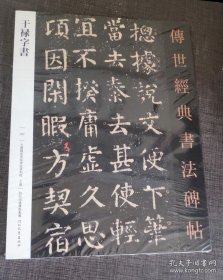 傳世經典書法碑帖
干禄字書
摠據說便下筆
當去泰去甚使輕
宜不揆庸虚久思
頃因閑暇方契宿